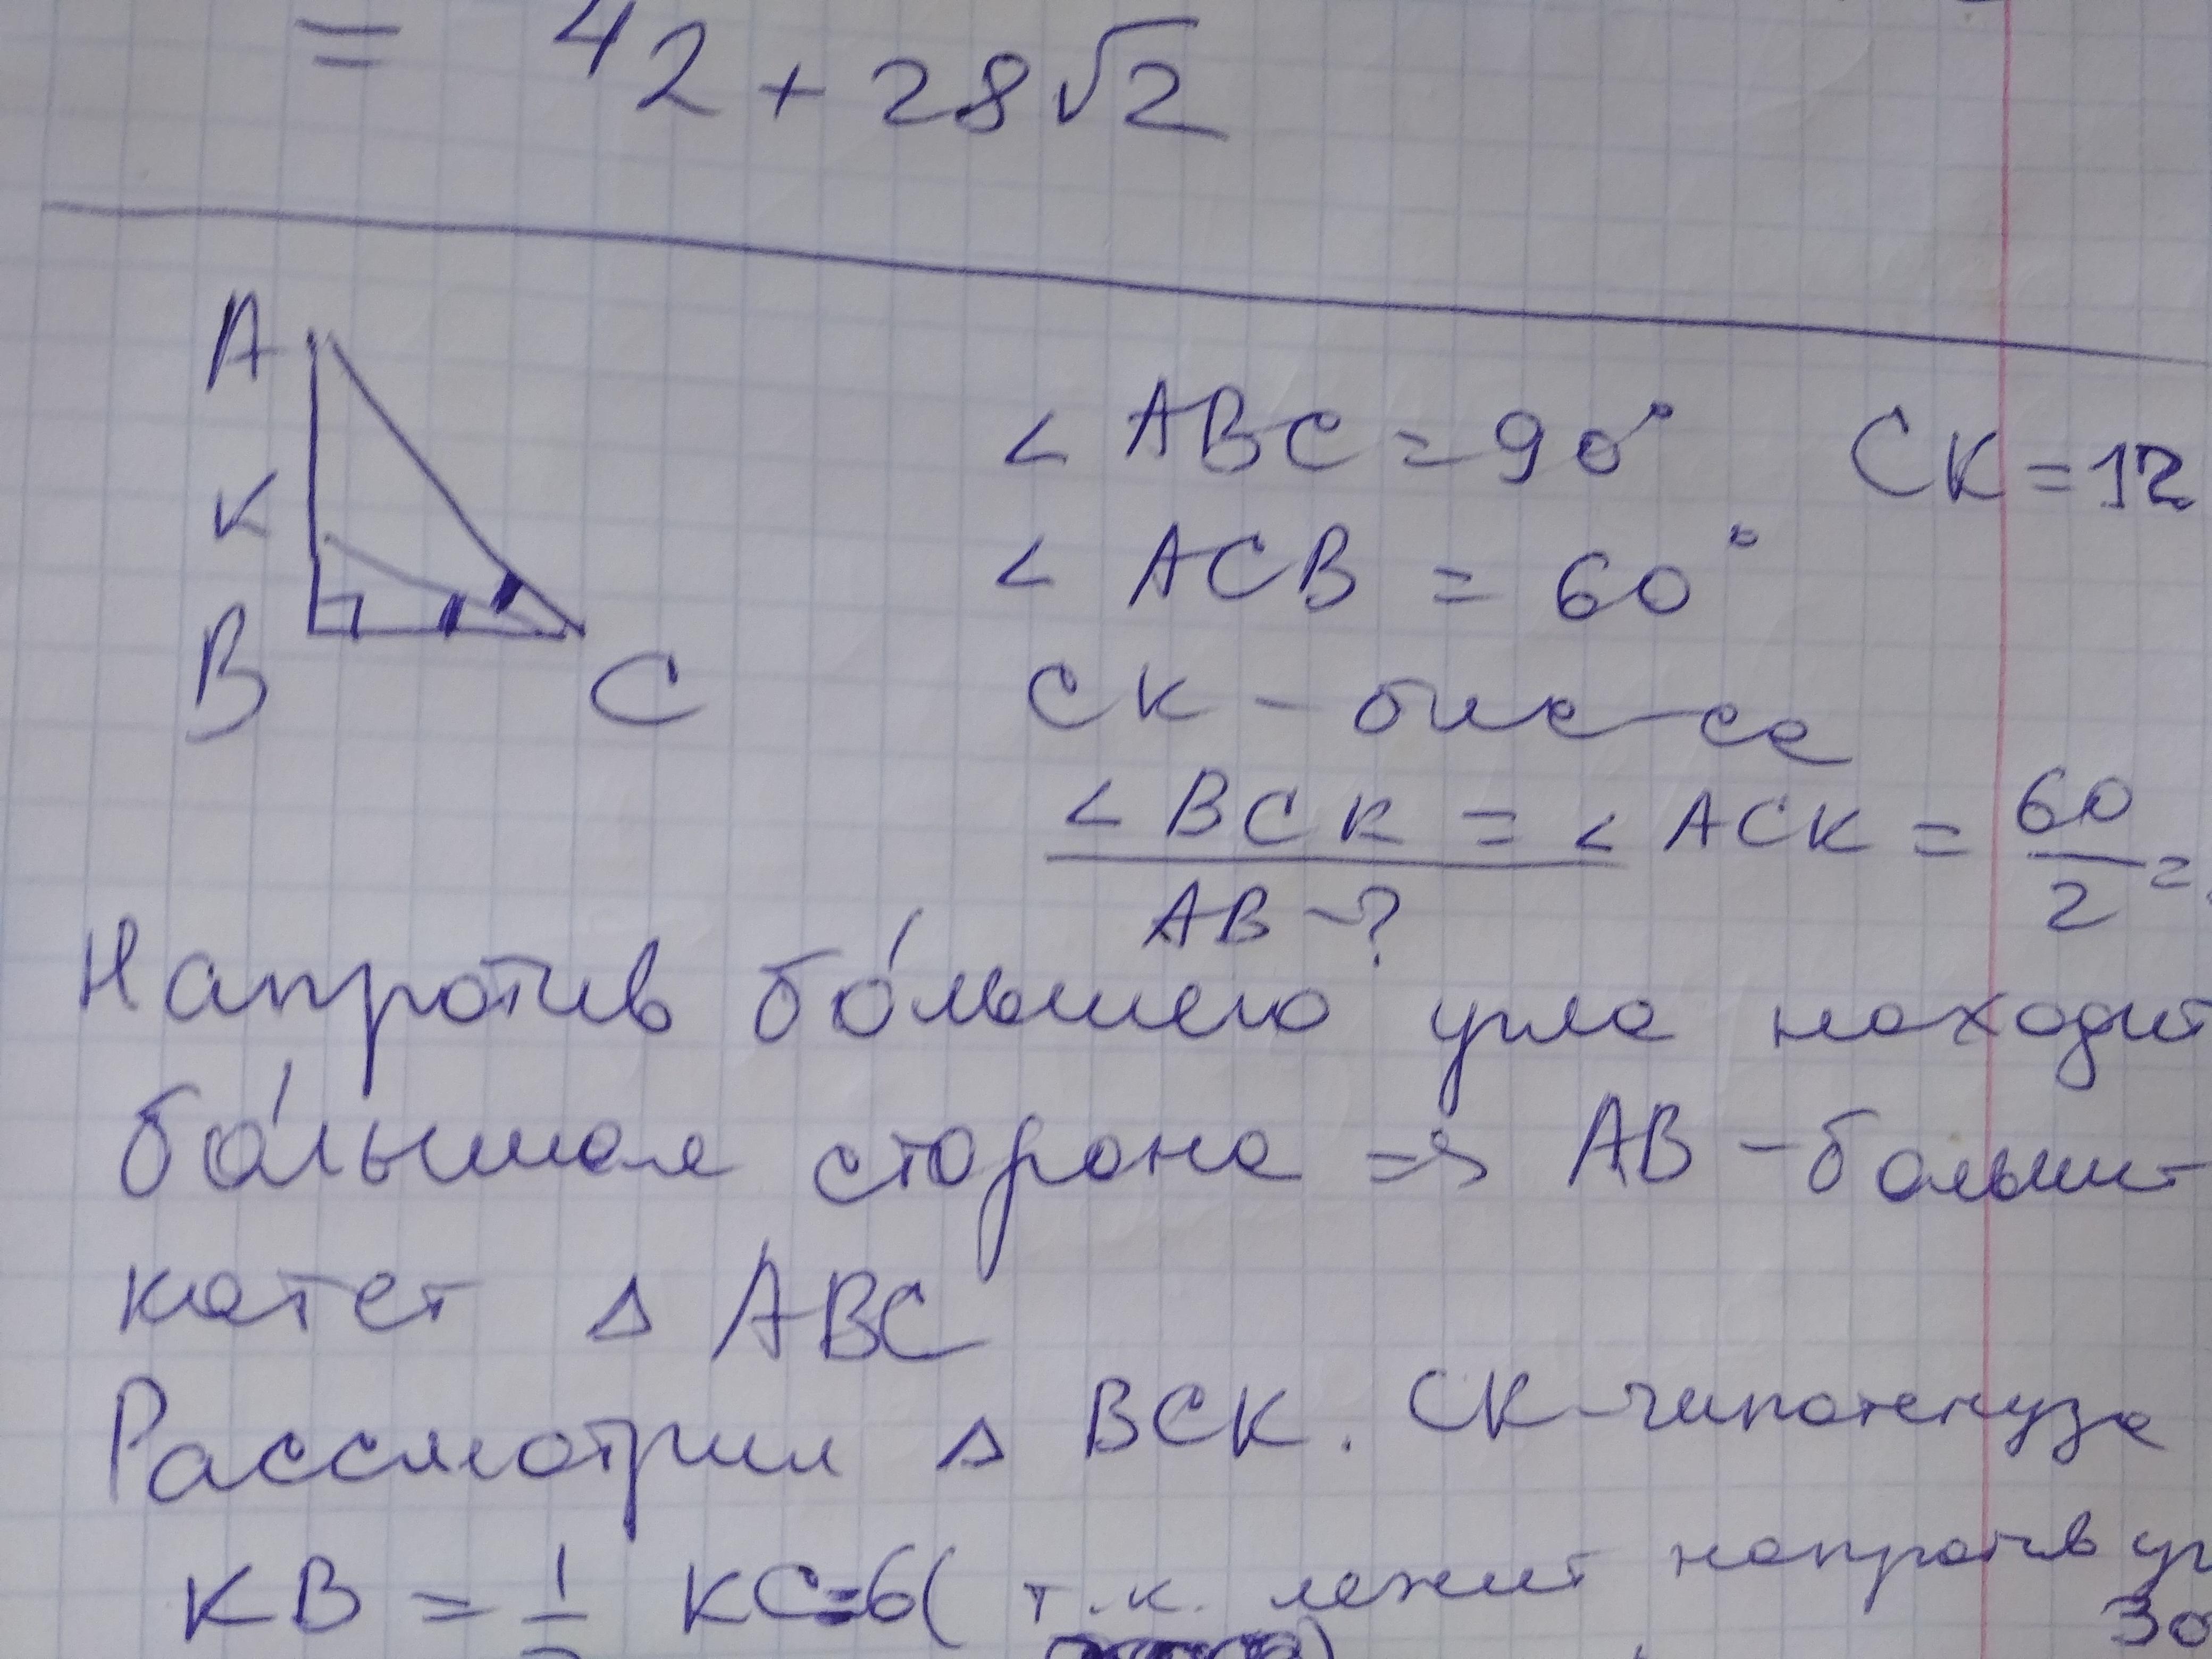 = 42 + 28√2
A
K
B
C
< ABC = 90° CK = 12
< ACB = 60°
CK - бис-са
< BCK = < ACK = 60/2 =
AB - ?
Напротив бо́льшего угла находит
бо́льшая сторона => AB - больший
катет △ ABC
Рассмотрим △ BCK. CK - гипотенуза
KB = 1/2 KC = 6 ( т.к. лежит напротив уг
30